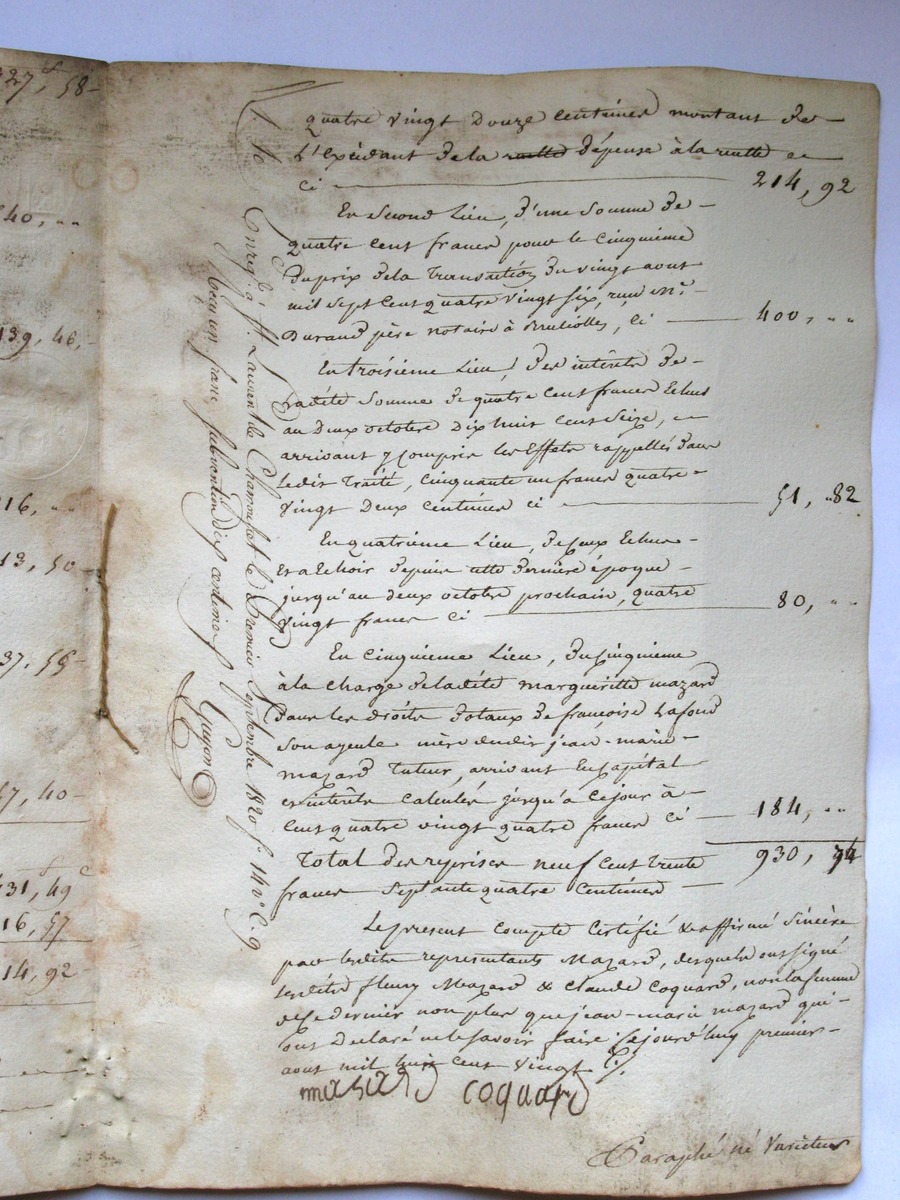 27, 58
40, ..
139, 46,
216, ..
13, 50
37, 55
67, 40
31, 49 c
16, 57
14, 92
quatre vingt douze centimes montant de
L'Excédant de la recette dépense à la recette
ci 214, 92
En Second Lieu, d'une Somme de
quatre cent francs pour le cinquième
Du prix de la transaction du vingt aout
mil Sept cent quatre vingt six, reçu Me.
Durand père notaire à , ci 400, ..
En troisième Lieu, des intérêts de
ladite Somme de quatre cent francs Echus
au deux octobre dix huit cent Seize,
arrivant y compris les Effets rappellés dans
ledit Traité, cinquante un francs quatre
vingt deux centimes ci 51, 82
En quatrième Lieu, de ceux Echus
et a Echoir depuis cette dernière époque
jusqu'au deux octobre prochain, quatre
vingt francs ci 80, ..
En cinquième Lieu, du cinquième
à la charge de ladite margueritte mazard
Dans les droits dotaux de françoise Lafond
Son ayeule mère dudit jean-marie
mazard Tuteur, arrivant En capital
et intérêts calculés jusqu'à ce jour à
Cent quatre vingt quatre francs ci 184, ..
Total des reprises neuf cent trente 930, 74
francs Septante quatre centimes
Le present compte certifié & affirmé Sincère
par lesdits représentants Mazard, desquels ont signé
lesdits fleury Mazard & claude Coquard, non la femme
de ce dernier non plus que jean-marie mazard qui
ont declaré ne le savoir faire ; ce jourd'huy premier
aout mil huit cent vingt
masard coquard
Paraphé né Varietur
Enreg. à St. Laurent de Chamousset le Premier Septembre 1820 fo. 14 vo. C. 9
Reçu un franc subvention dix centimes Guyon